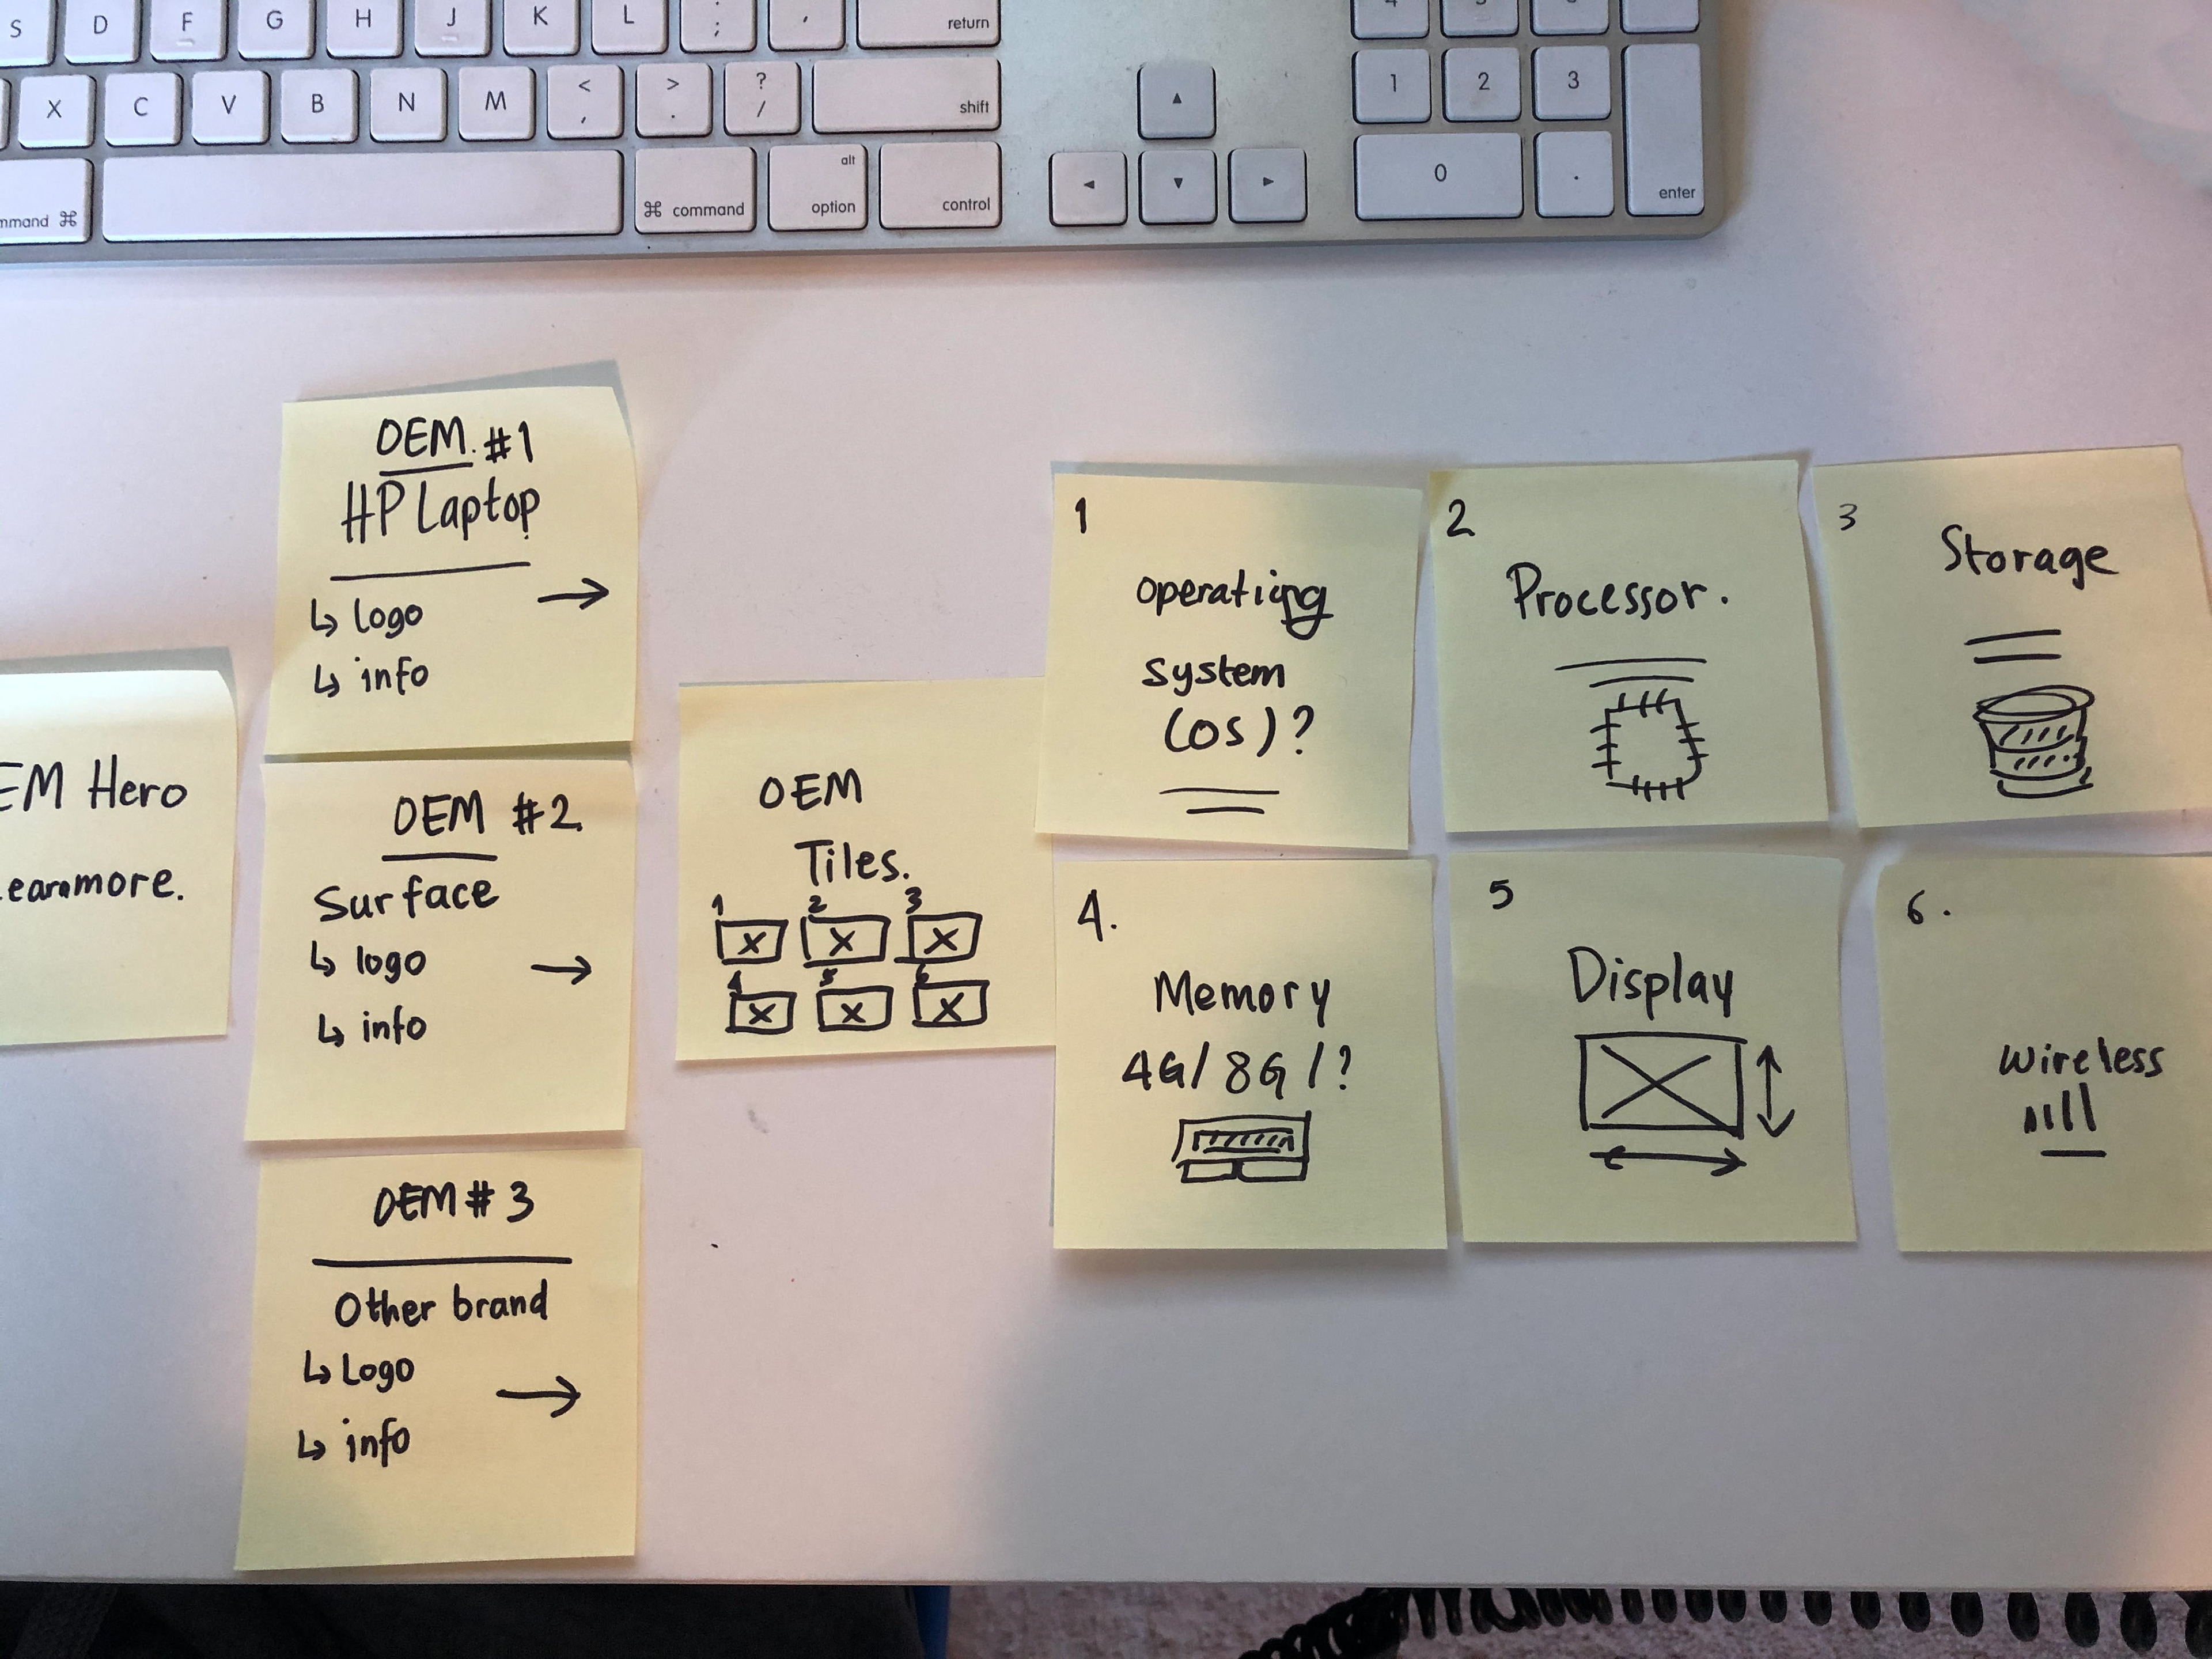 S D F G H J K L ; : ' return
X C V B N M < , > . ? / shift
mmand ⌘ ⌘ command alt option control
◄ ▲ ▼ ►
1 2 3
0 . enter
EM Hero
earnmore.
OEM. #1
HP Laptop
↳ logo →
↳ info
OEM #2
Surface
↳ logo →
↳ info
OEM # 3
Other brand
↳ Logo →
↳ info
OEM
Tiles.
1 2 3
X X X
4 5 6
X X X
1
operating
system
(OS)?
2
Processor.
3
Storage
4.
Memory
4G/ 8G /?
5
Display
6.
wireless